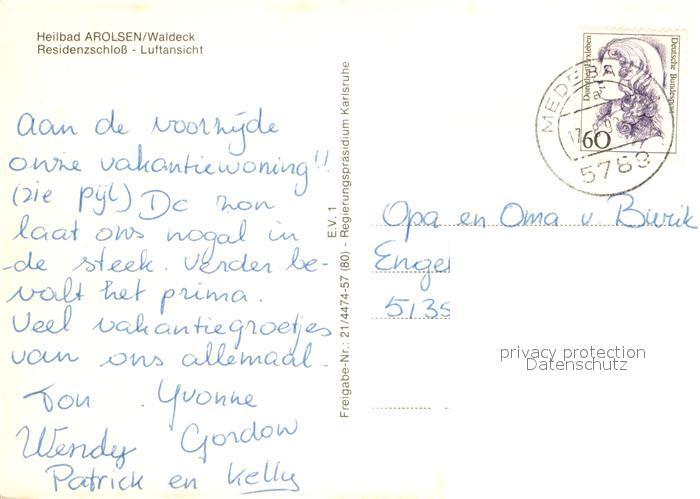 Heilbad AROLSEN/Waldeck
Residenzschloß - Luftansicht
Aan de voorzijde
onze vakantiewoning!!
(zie pijl) De zon
laat ons nogal in
de steek. Verder be-
valt het prima.
Veel vakantiegroetjes
van ons allemaal.
Ton . Yvonne
Wendy Gordon
Patrick en Kelly
E.V. 1
Freigabe-Nr.: 21/4474-57 (80) - Regierungspräsidium Karlsruhe
Deutsche Bundespost
Dorothea Erxleben
60
5789
Opa en Oma v.
Engel
5135
privacy protection
Datenschutz